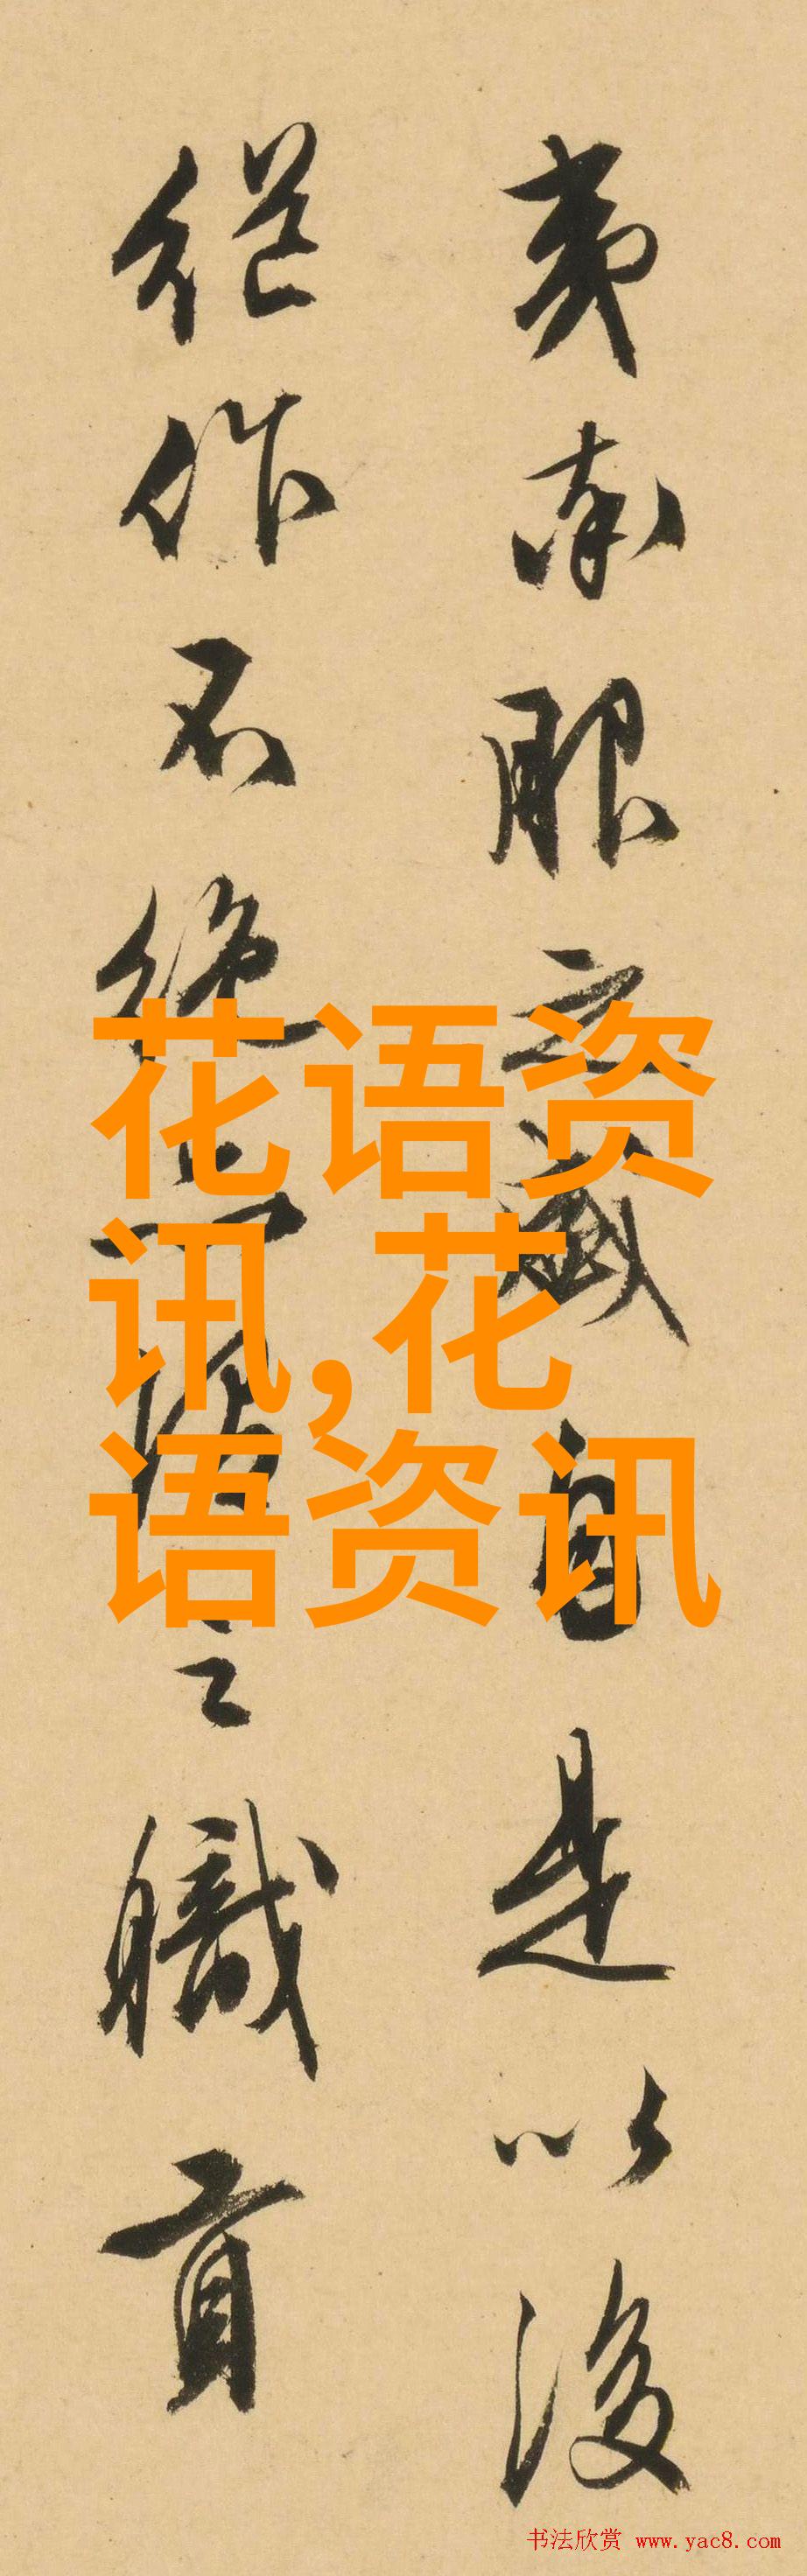 夷 服 自是以後
継作不絶 之職貢
花语资
讯,花
语资讯
书法欣赏 www.yac8.com